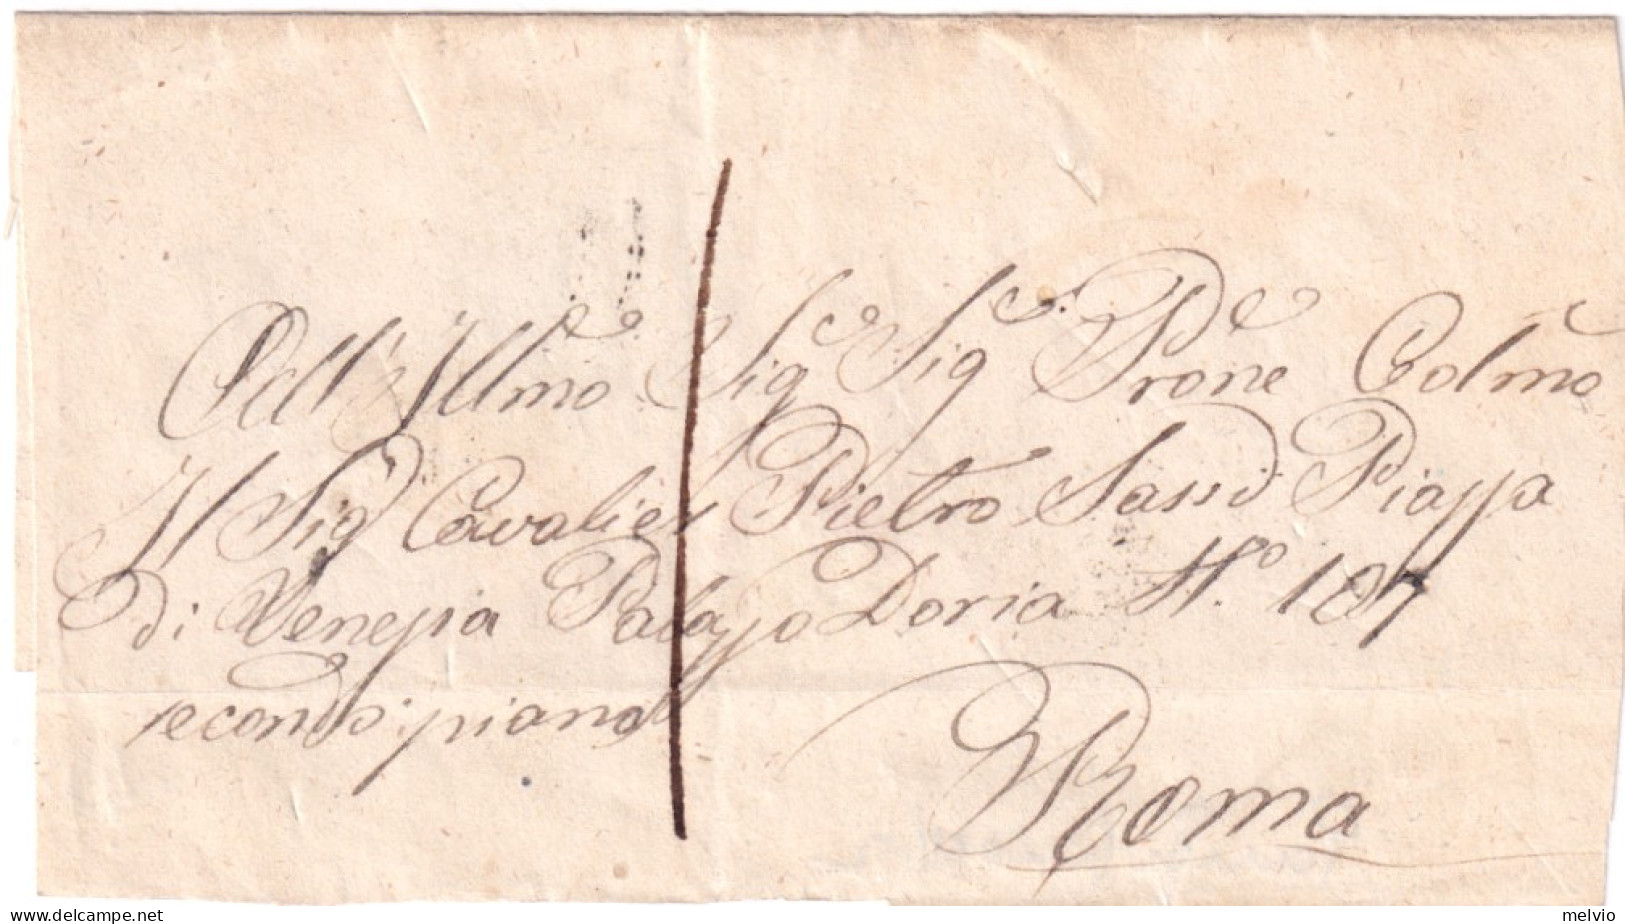 All'Illmo Sig Sig Prone Colmo
Il Sig Cavalier Pietro Sassi Piazza
di Venezia Palazzo Doria N.° 187
secondo piano
Roma
www.delcampe.net
melvio